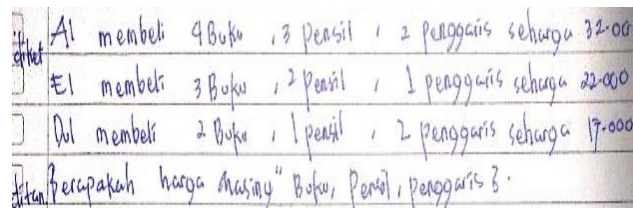 diket Al membeli 4 Buku , 3 Pensil , 2 penggaris seharga 32.00
El membeli 3 Buku , 2 Pensil , 1 penggaris seharga 22.000
Dul membeli 2 Buku , 1 pensil , 2 penggaris seharga 17.000
ditan Berapakah harga masing" Buku, Pensil, penggaris ?.